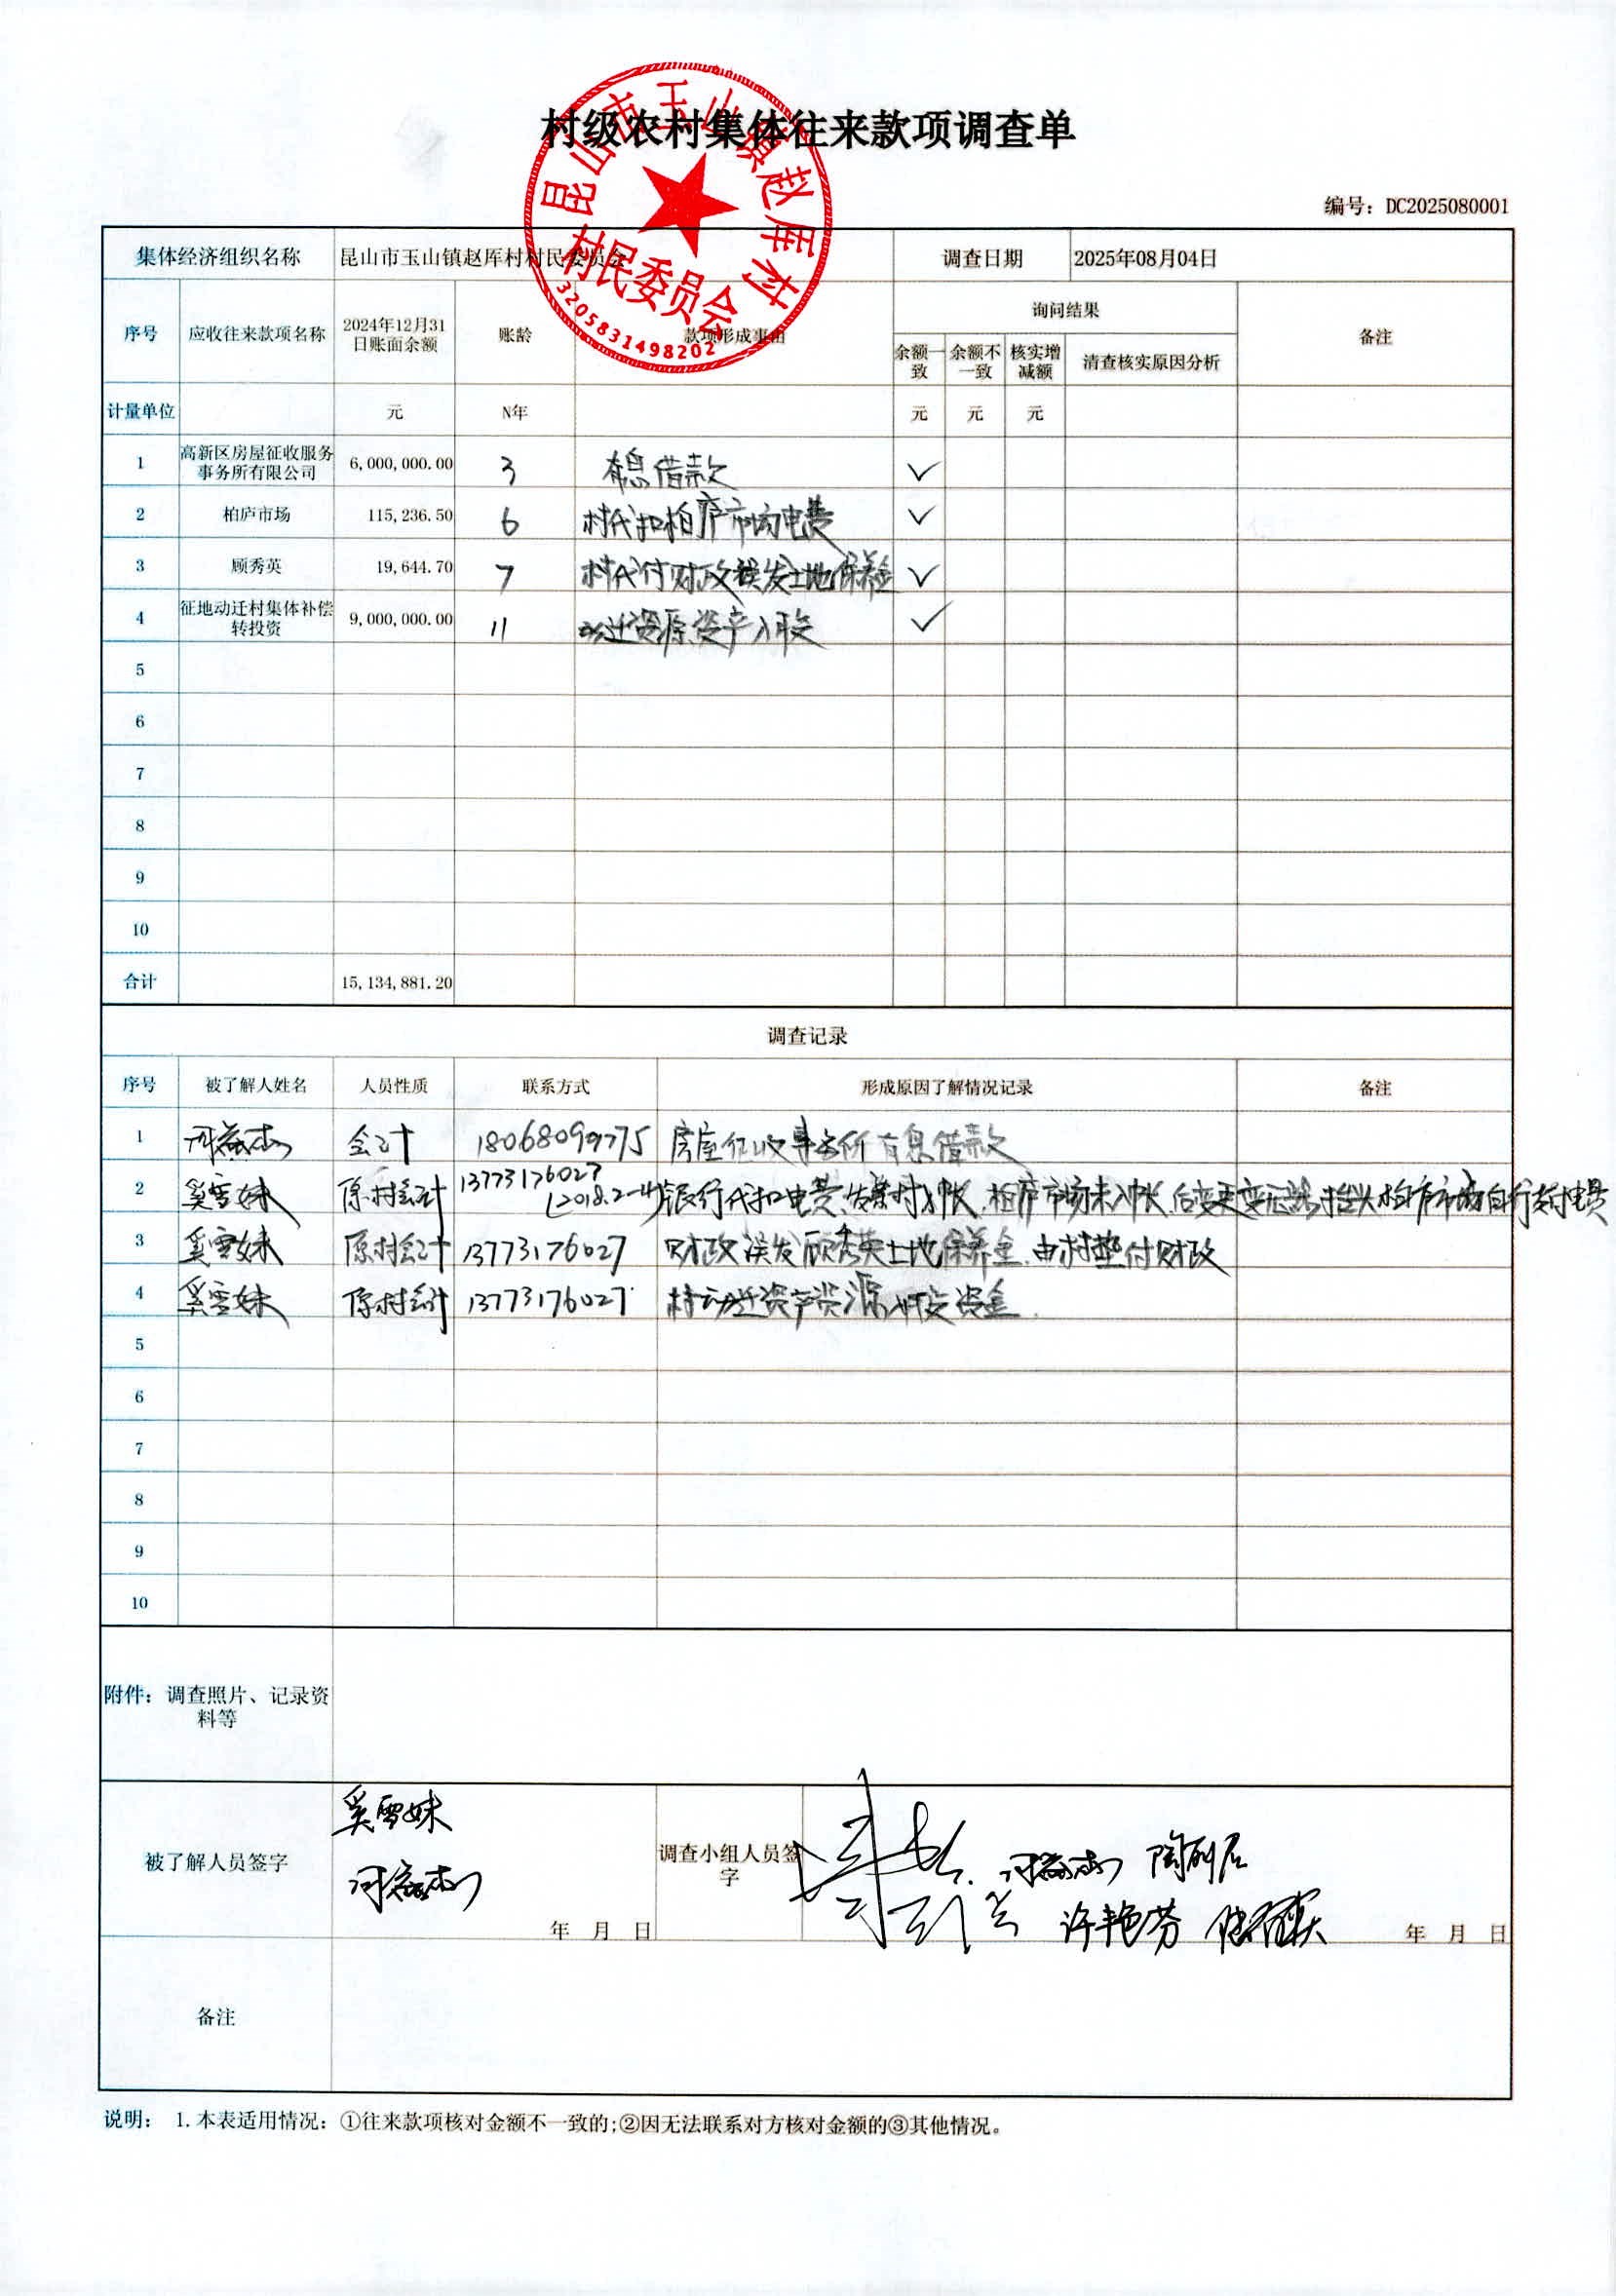 村级农村集体往来款项调查单
昆山市玉山镇赵厍村
村民委员会
3205831498202
编号：DC2025080001
集体经济组织名称 昆山市玉山镇赵厍村村民委员会 调查日期 2025年08月04日
序号 应收往来款项名称 2024年12月31日账面余额 账龄 款项形成事由 询问结果 备注
余额一致 余额不一致 核实增减额 清查核实原因分析
计量单位 元 N年 元 元 元
1 高新区房屋征收服务事务所有限公司 6,000,000.00 3 有息借款 ✓
2 柏庐市场 115,236.50 6 村代扣柏庐市场电费 ✓
3 顾秀英 19,644.70 7 村代付财政误发土地保养金 ✓
4 征地动迁村集体补偿转投资 9,000,000.00 11 动迁资源资产入股 ✓
5
6
7
8
9
10
合计 15,134,881.20
调查记录
序号 被了解人姓名 人员性质 联系方式 形成原因了解情况记录 备注
1 会计 18068099775 房屋征收事务所有息借款
2 奚雪妹 原村会计 13773176027 (2018.2-4)银行代扣电费,发票村入帐,柏庐市场未入帐,后变更 抬头柏庐市场自行支付电费
3 奚雪妹 原村会计 13773176027 财政误发顾秀英土地保养金,由村垫付财政
4 奚雪妹 原村会计 13773176027 村动迁资产资源 资金
5
6
7
8
9
10
附件：调查照片、记录资料等
被了解人员签字 奚雪妹 年 月 日
调查小组人员签字 许艳芬 年 月 日
备注
说明： 1.本表适用情况：①往来款项核对金额不一致的;②因无法联系对方核对金额的③其他情况。